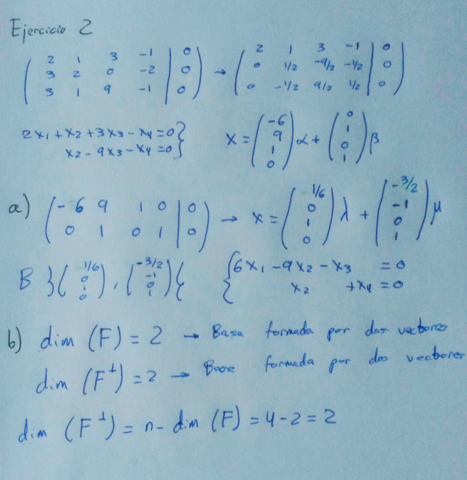 Ejercicio 2
( 2 1 3 -1 | 0 ) → ( 2 1 3 -1 | 0 )
( 3 2 0 -2 | 0 ) ( 0 1/2 -9/2 -1/2 | 0 )
( 3 1 9 -1 | 0 ) ( 0 -1/2 9/2 1/2 | 0 )
2x1 + x2 + 3x3 - x4 = 0 } x = (-6 9 1 0) α + (0 1 0 1) β
x2 - 9x3 - x4 = 0 }
a) ( -6 9 1 0 | 0 ) → x = (1/6 0 1 0) λ + (-3/2 -1 0 1) μ
( 0 1 0 1 | 0 )
B } (1/6 0 1 0), (-3/2 -1 0 1) { { 6x1 - 9x2 - x3 = 0
x2 + x4 = 0
b) dim (F) = 2 → Base formada por dos vectores
dim (F⊥) = 2 → Base formada por dos vectores
dim (F⊥) = n - dim (F) = 4 - 2 = 2